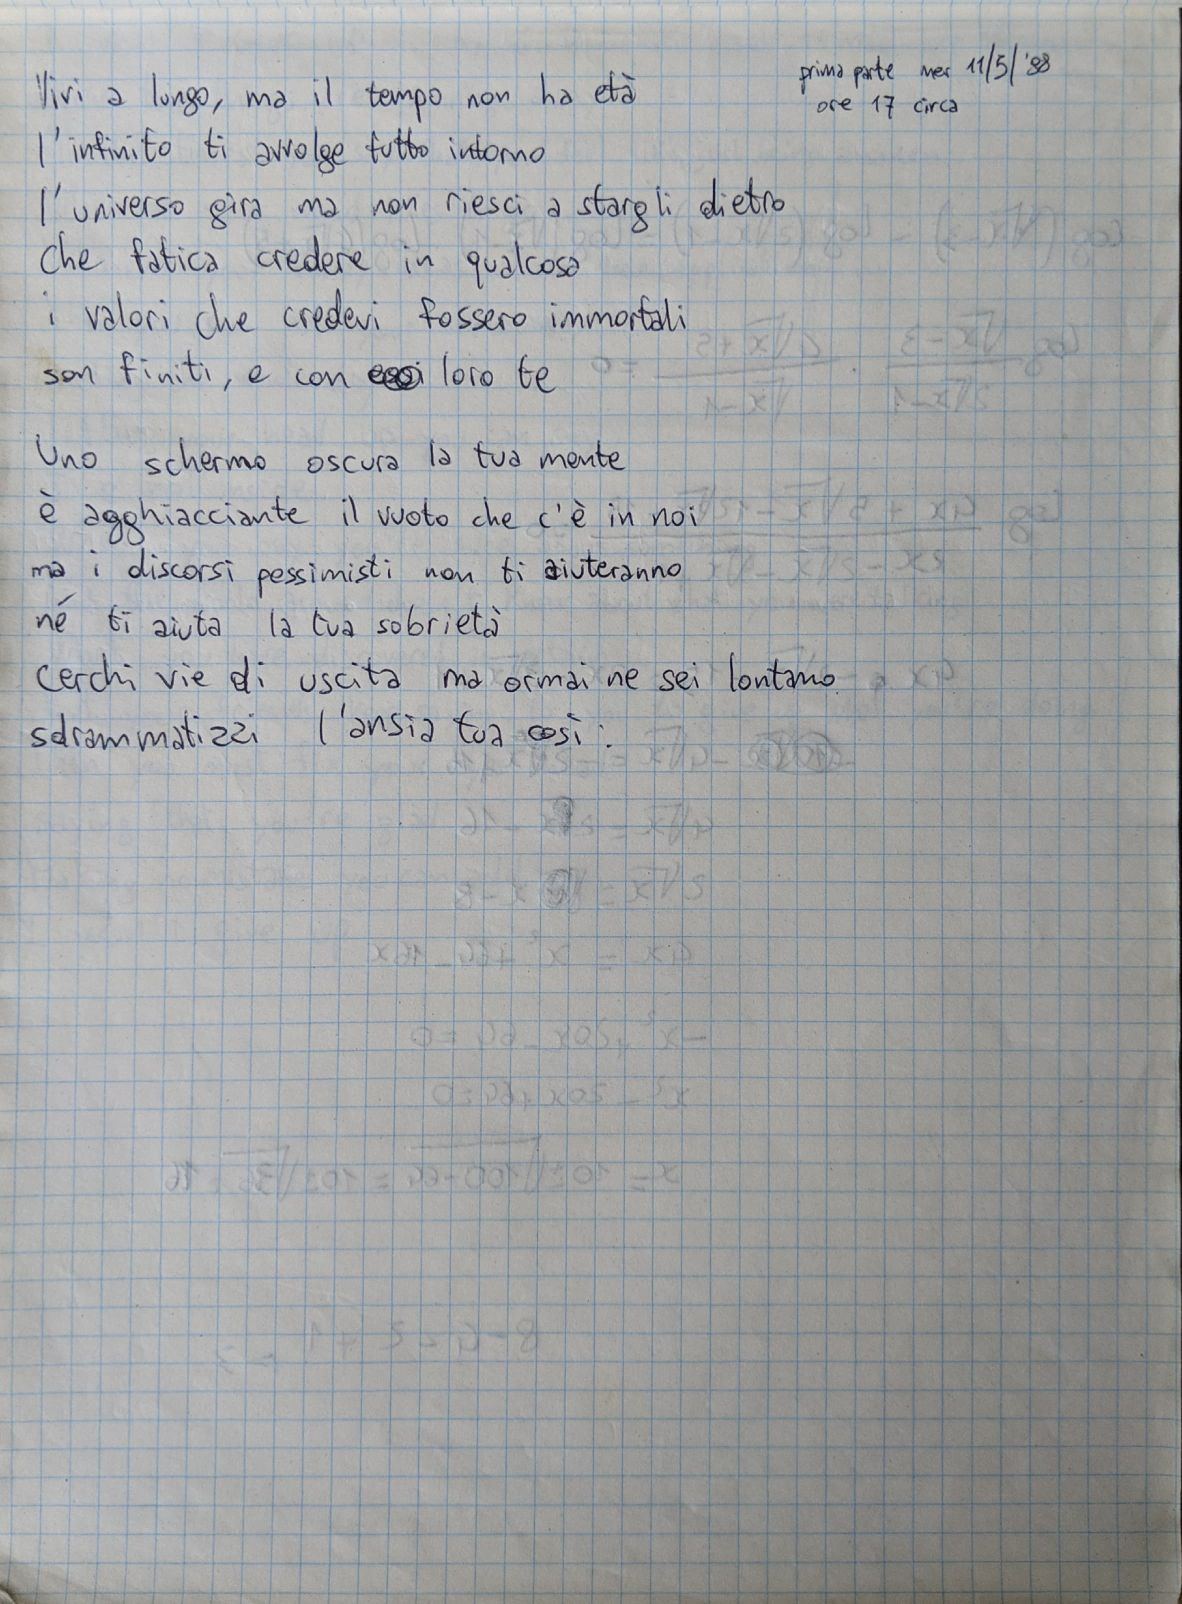 prima parte mer 11/5/'88
ore 17 circa
Vivi a lungo, ma il tempo non ha età
l'infinito ti avvolge tutto intorno
l'universo gira ma non riesci a stargli dietro
che fatica credere in qualcosa
i valori che credevi fossero immortali
son finiti, e con essi loro te
Uno schermo oscura la tua mente
è agghiacciante il vuoto che c'è in noi
ma i discorsi pessimisti non ti aiuteranno
né ti aiuta la tua sobrietà
cerchi vie di uscita ma ormai ne sei lontano
sdrammatizzi l'ansia tua così: